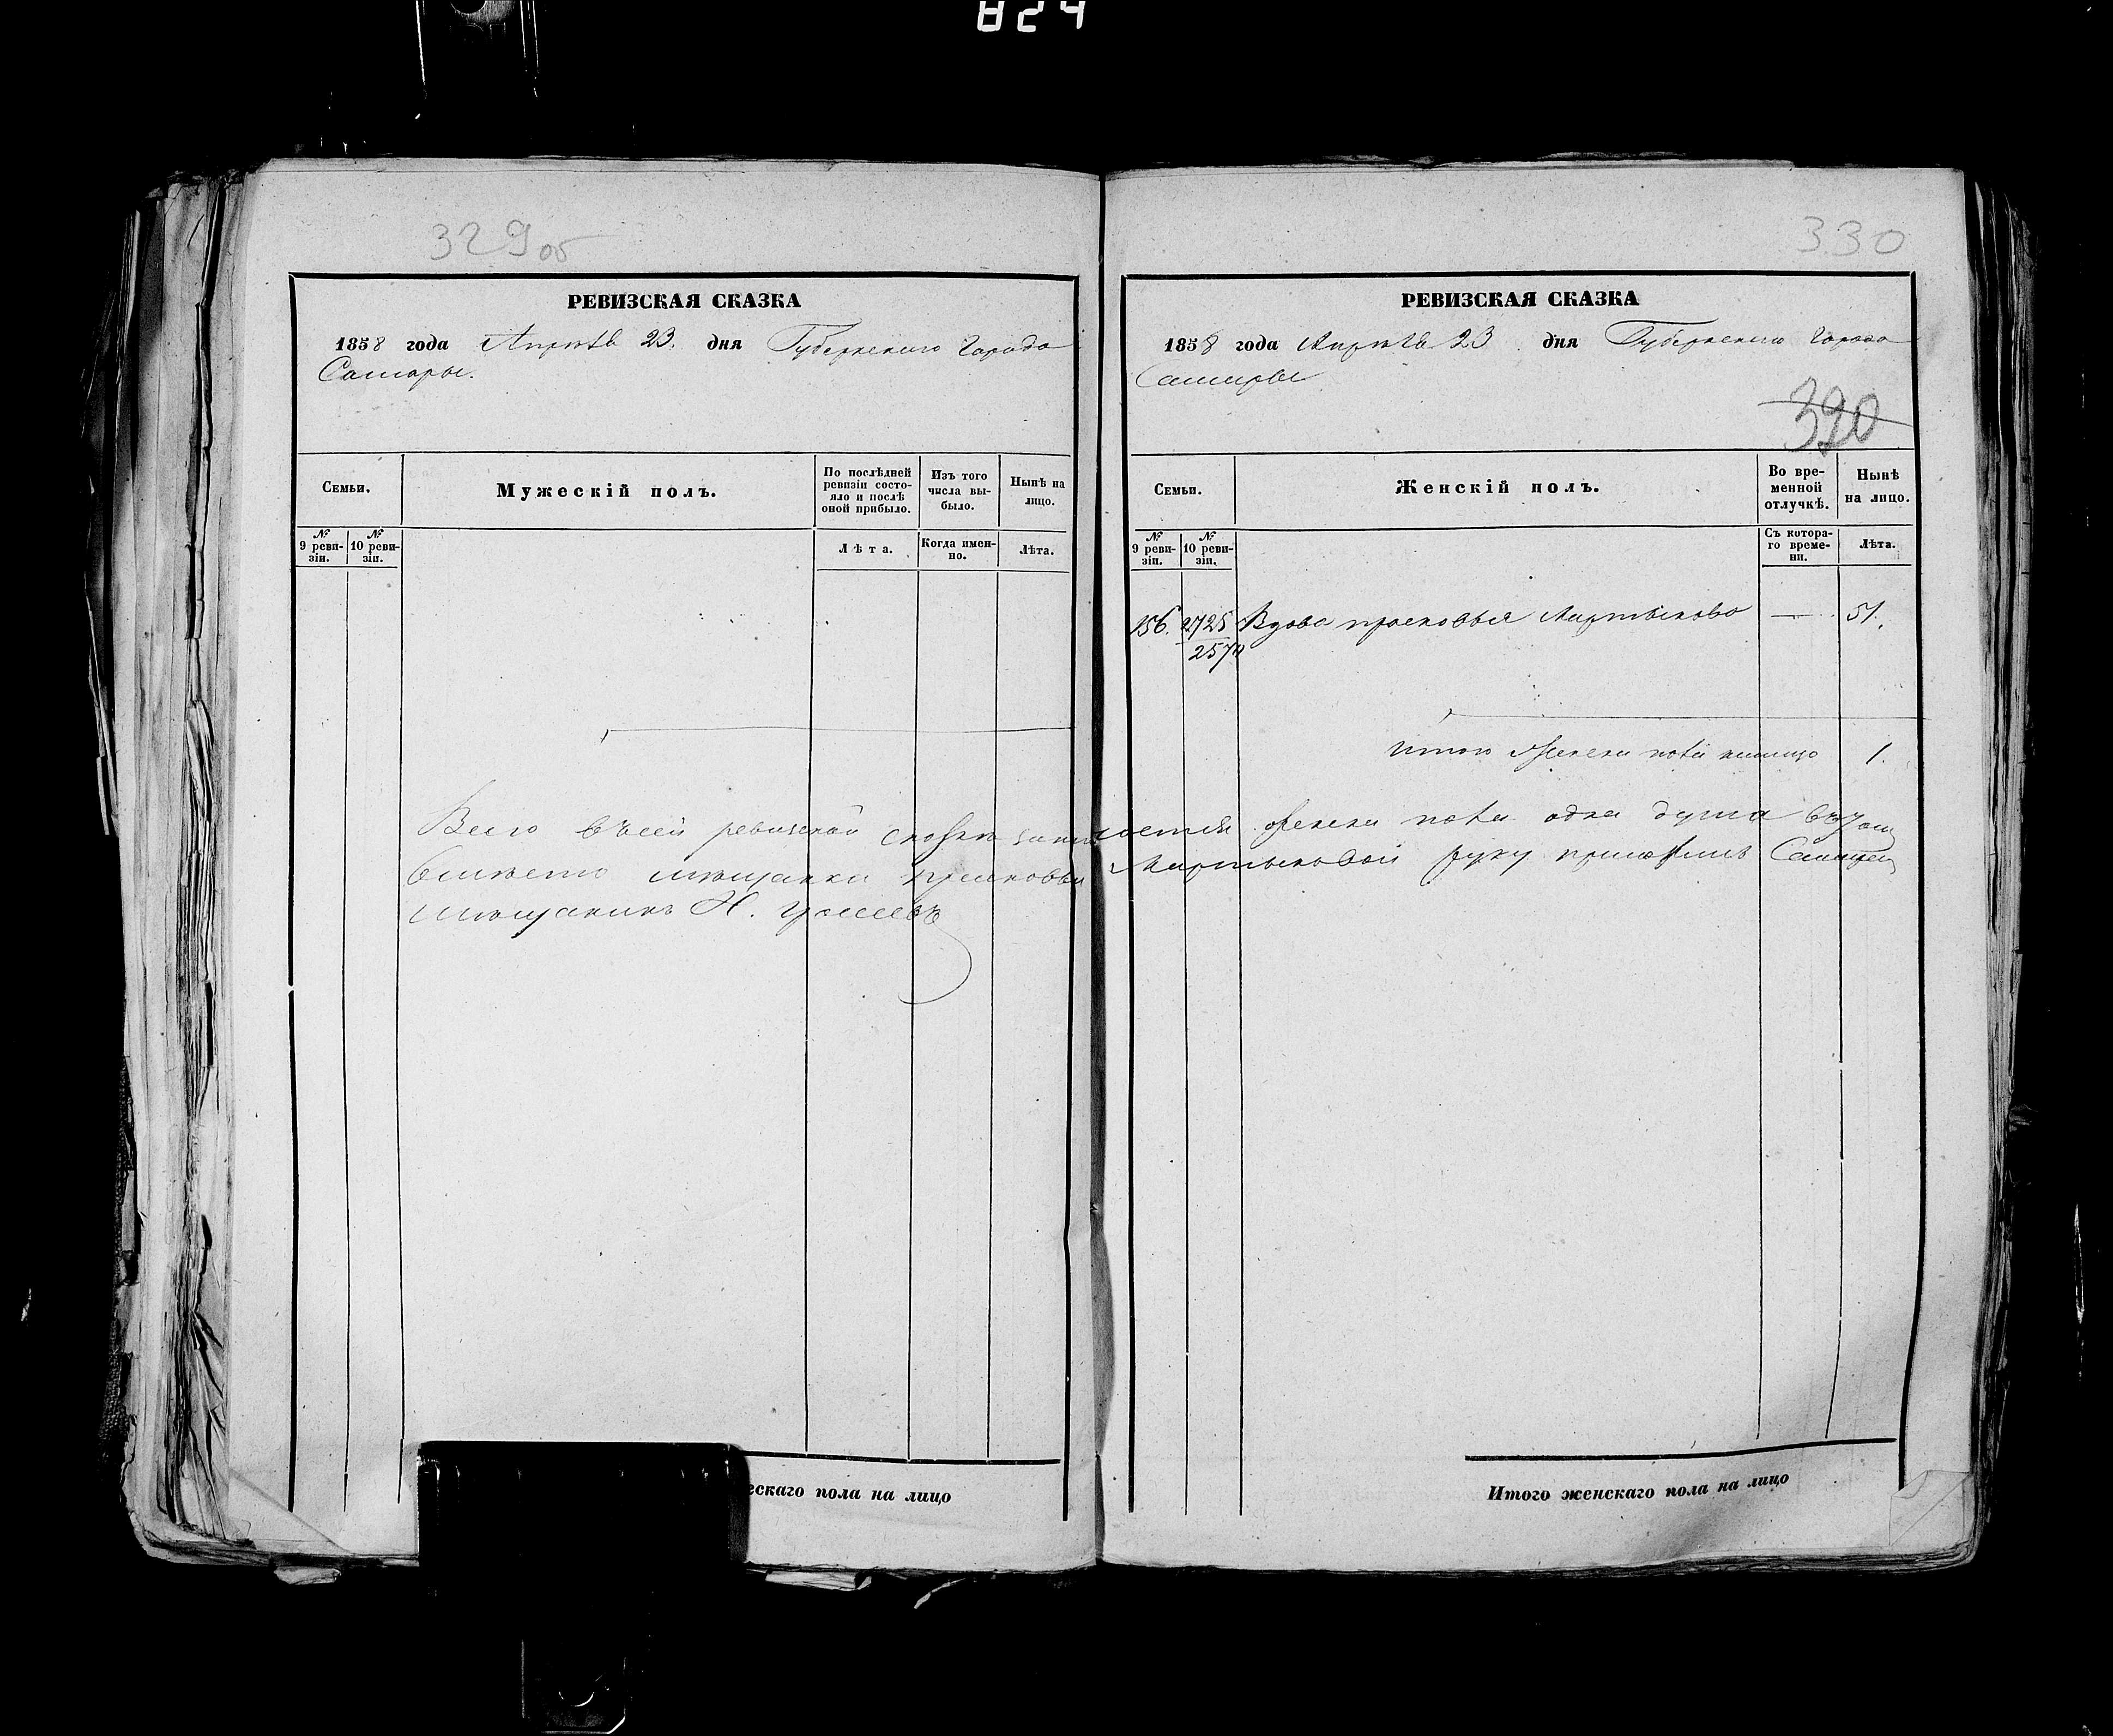 824
329об
РЕВИЗСКАЯ СКАЗКА
1858 года Апрѣль 23. дня Губернскаго Города
Самары.
Семьи.
Мужескій полъ.
По послѣдней ревизіи состояло и послѣ оной прибыло.
Изъ того числа выбыло.
Нынѣ на лицо.
№ 9 ревизіи.
№ 10 ревизіи.
Лѣта.
Когда именно.
Лѣта.
330
РЕВИЗСКАЯ СКАЗКА
1858 года Апрѣль 23 дня Губернскаго Города
Самары
390
Семьи.
Женскій полъ.
Во временной отлучкѣ.
Нынѣ на лицо.
№ 9 ревизіи.
№ 10 ревизіи.
Съ котораго времени.
Лѣта.
156. 2725 Вдова Прасковья Мартынова — 51.
2570
Итого Женска пола налицо 1.
Всего въ сей ревизской сказке женска пола одна душа
вместо мещанки Прасковьи Мартыновой руку приложилъ
мещанинъ Н.
ескаго пола на лицо
Итого женскаго пола на лицо